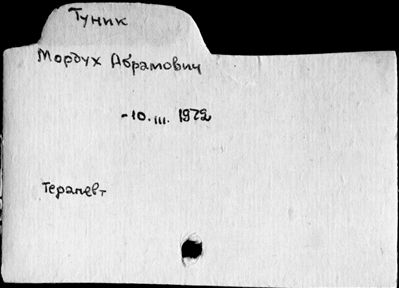 Туник
Мордух Абрамович
-10.III. 1972
Терапевт